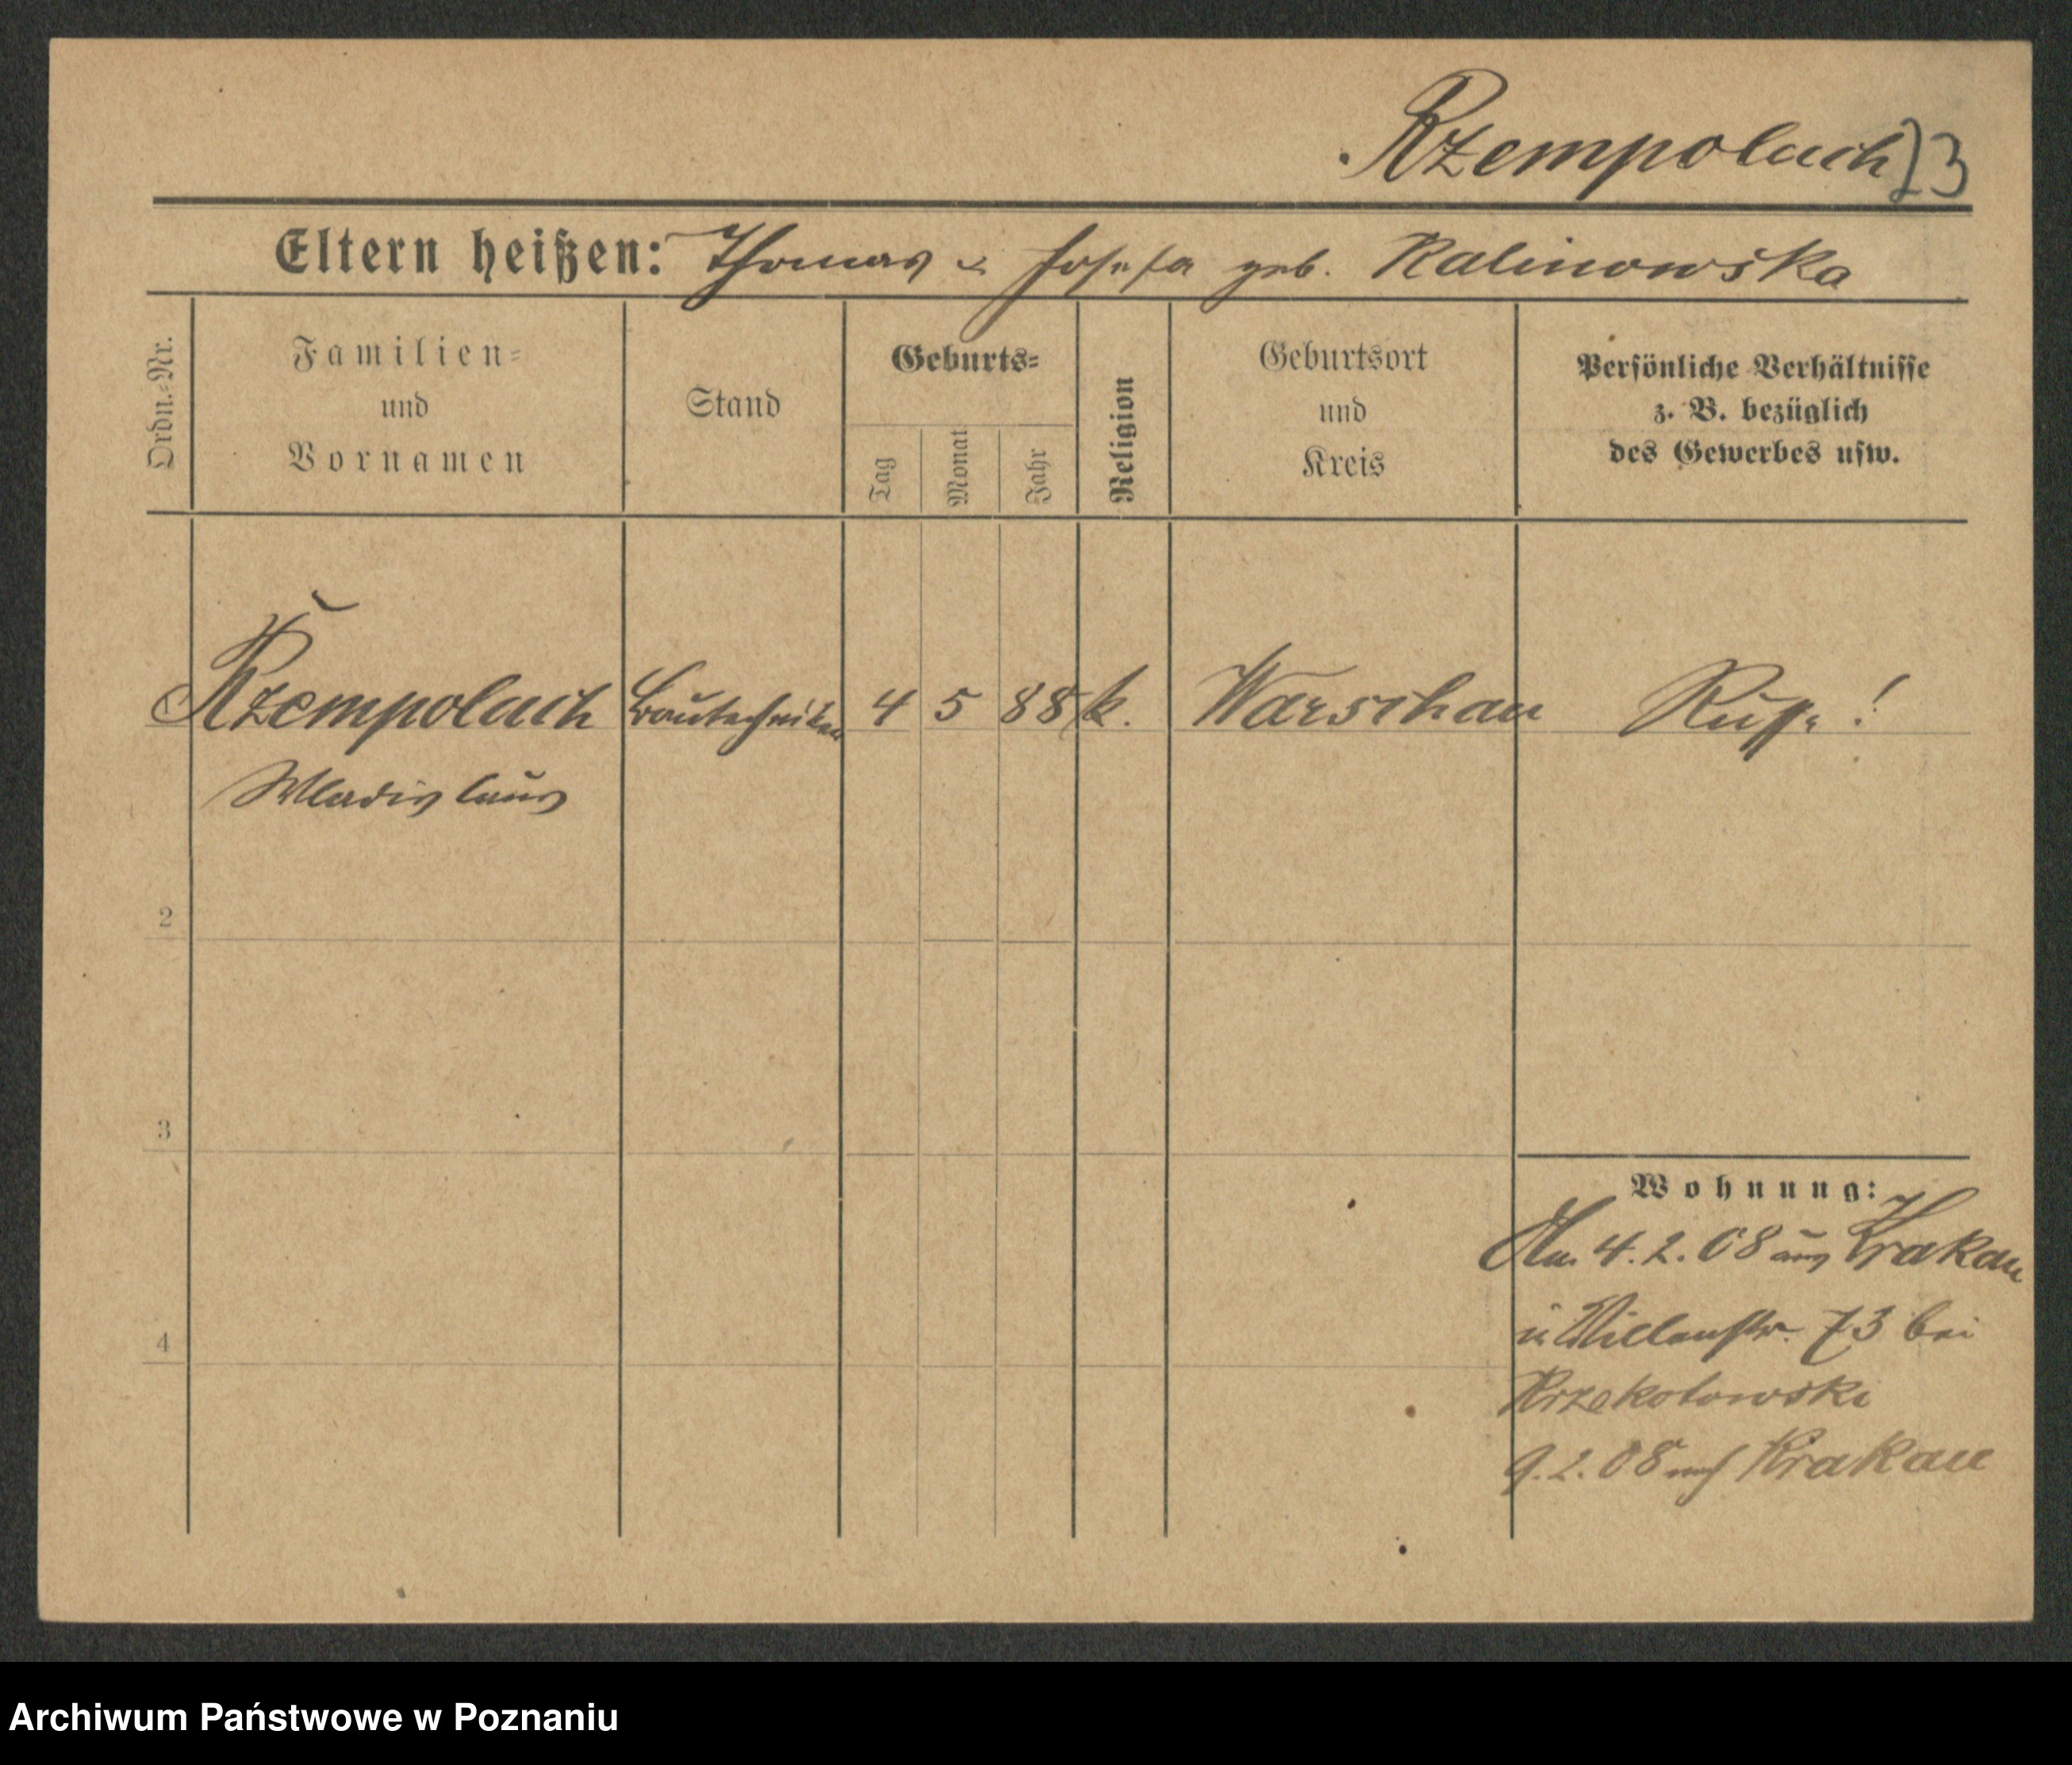 Rzempoluch 23
Eltern heißen: Thomas u Josefa geb. Kalinowska
Ordn.-Nr.
Familien-
und
Vornamen
Stand
Geburts-
Tag
Monat
Jahr
Religion
Geburtsort
und
Kreis
Persönliche Verhältnisse
z. B. bezüglich
des Gewerbes usw.
Rzempoluch Bautechniker 4 5 88 k. Warschau Russe!
Wladislaus
2
3
4
Wohnung:
Am 4.2.08 aus Krakau
73 bei
Krzekotowski
9.2.08 nach Krakau
Archiwum Państwowe w Poznaniu